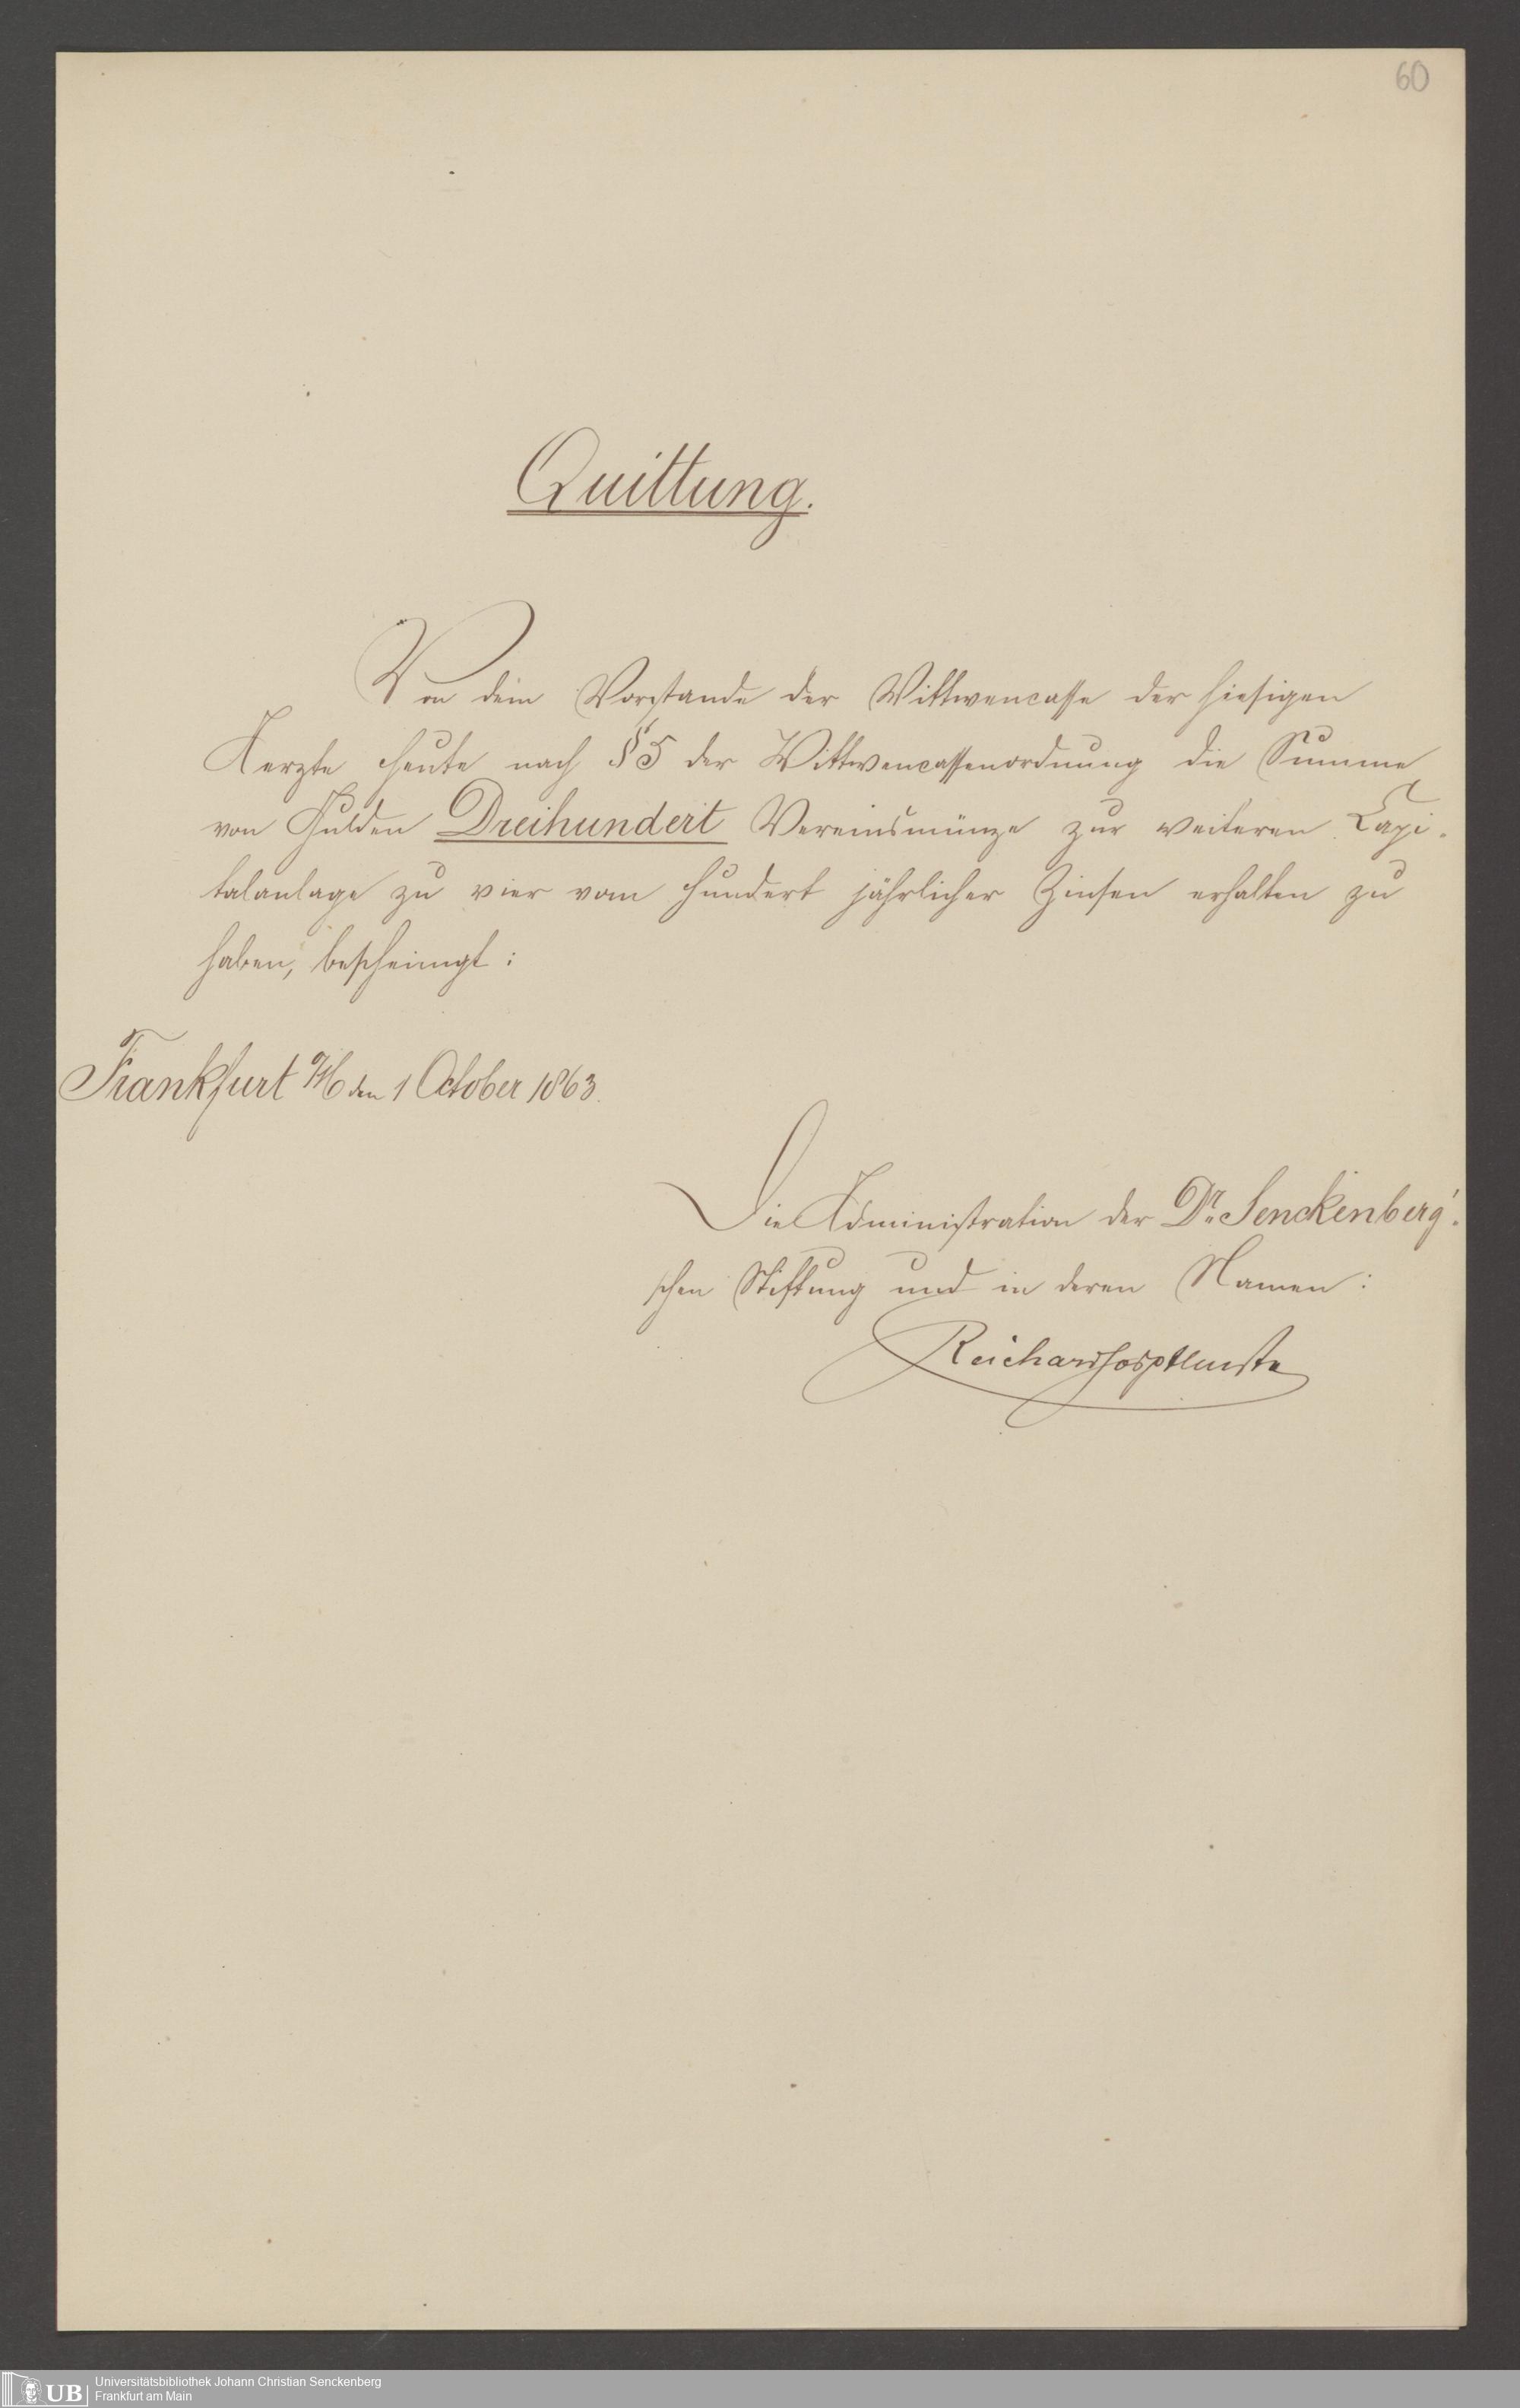 60
Quittung.
Von dem Vorstande der Wittwencasse der hiesigen
Aerzte heute nach § 5 der Wittwencassenordnung die Summe
von Gulden Dreihundert Vereinsmünze zur weiteren Capi-
talanlage zu vier vom Hundert jährlicher Zinsen erhalten zu
haben, bescheinigt:
Frankfurt a/M den 1 October 1863.
Die Administration der Dr. Senckenberg'-
schen Stiftung und in deren Namen:
UB
Universitätsbibliothek Johann Christian Senckenberg
Frankfurt am Main